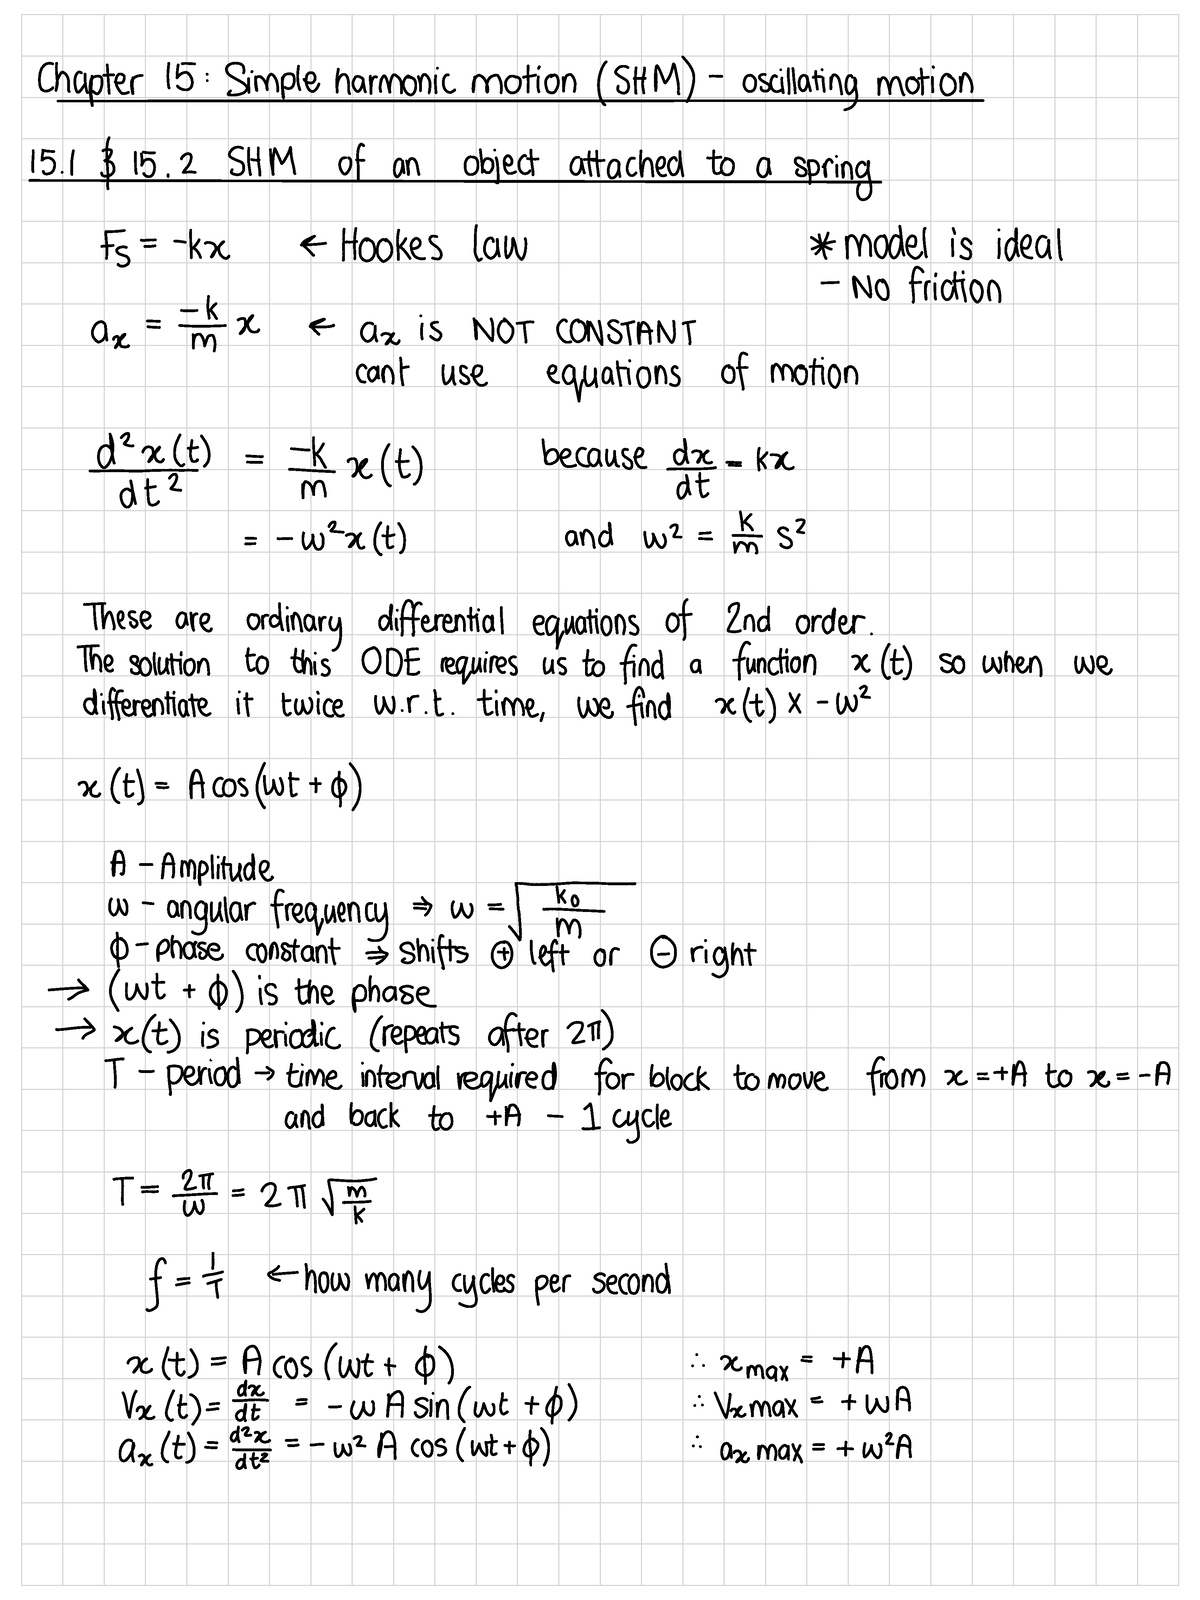 Chapter 15: Simple harmonic motion (SHM) - oscillating motion
15.1 & 15.2 SHM of an object attached to a spring
Fs = -kx ← Hookes law
* model is ideal
- No friction
aₓ = -k/m x ← aₓ is NOT CONSTANT
cant use equations of motion
d²x(t)/dt² = -k/m x(t) because dx/dt - kx
= -ω²x(t) and ω² = k/m s²
These are ordinary differential equations of 2nd order.
The solution to this ODE requires us to find a function x(t) so when we
differentiate it twice w.r.t. time, we find x(t) x -ω²
x(t) = A cos(ωt + ϕ)
A - Amplitude
ω - angular frequency ⇒ ω = √(k₀/m)
ϕ - phase constant ⇒ shifts ⊕ left or ⊖ right
→ (ωt + ϕ) is the phase
→ x(t) is periodic (repeats after 2π)
T - period → time interval required for block to move from x = +A to x = -A
and back to +A - 1 cycle
T = 2π/ω = 2π √(m/k)
f = 1/T ← how many cycles per second
x(t) = A cos (ωt + ϕ) ∴ x max = +A
Vₓ(t) = dx/dt = -ωA sin(ωt + ϕ) ∴ Vₓ max = +ωA
aₓ(t) = d²x/dt² = -ω² A cos(ωt + ϕ) ∴ aₓ max = +ω²A